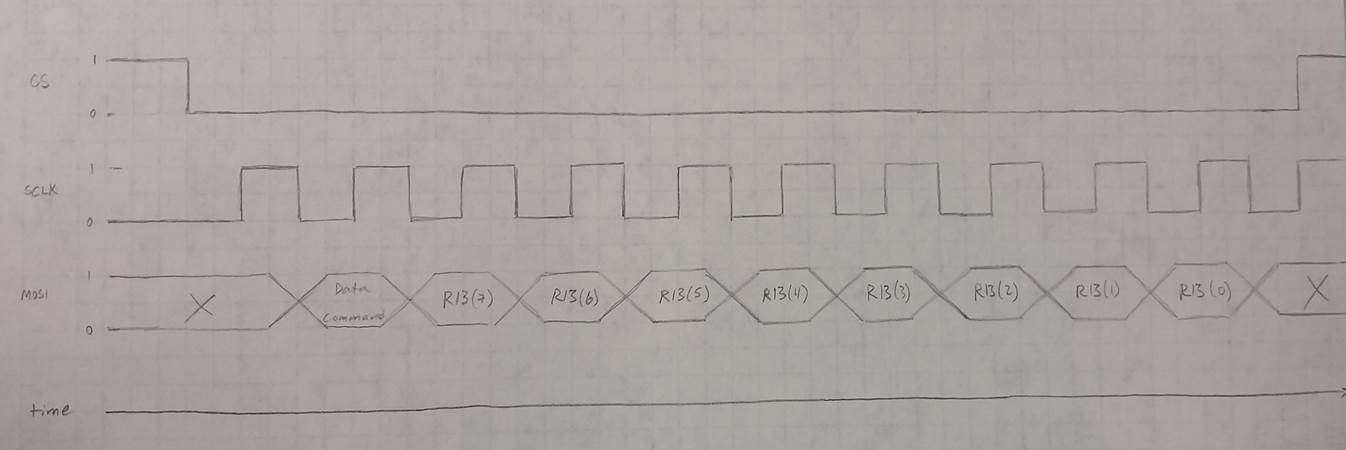 1
CS
0
1
SCLK
0
1
MOSI
X
Data
Command
R13(7)
R13(6)
R13(5)
R13(4)
R13(3)
R13(2)
R13(1)
R13(0)
X
0
time